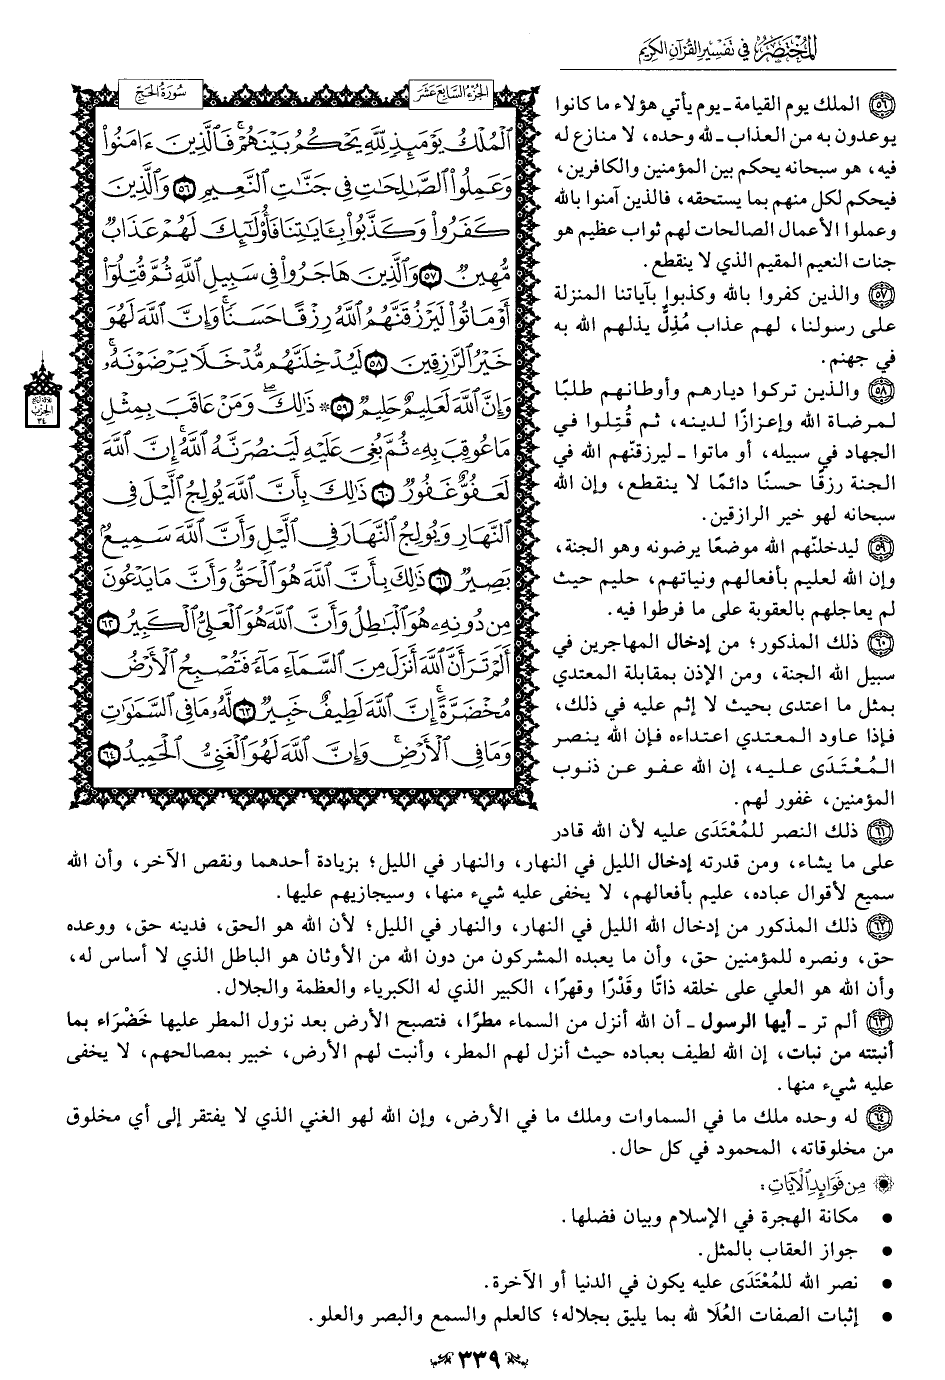 المختصر في تفسير القرآن الكريم
الجزء السابع عشر
سورة الحج
ٱلْمُلْكُ يَوْمَئِذٍ لِّلَّهِ يَحْكُمُ بَيْنَهُمْ فَٱلَّذِينَ ءَامَنُوا۟
وَعَمِلُوا۟ ٱلصَّٰلِحَٰتِ فِى جَنَّٰتِ ٱلنَّعِيمِ ٥٦ وَٱلَّذِينَ
كَفَرُوا۟ وَكَذَّبُوا۟ بِـَٔايَٰتِنَا فَأُو۟لَٰٓئِكَ لَهُمْ عَذَابٌ
مُّهِينٌ ٥٧ وَٱلَّذِينَ هَاجَرُوا۟ فِى سَبِيلِ ٱللَّهِ ثُمَّ قُتِلُوٓا۟
أَوْ مَاتُوا۟ لَيَرْزُقَنَّهُمُ ٱللَّهُ رِزْقًا حَسَنًا ۚ وَإِنَّ ٱللَّهَ لَهُوَ
خَيْرُ ٱلرَّٰزِقِينَ ٥٨ لَيُدْخِلَنَّهُم مُّدْخَلًا يَرْضَوْنَهُۥ ۗ
وَإِنَّ ٱللَّهَ لَعَلِيمٌ حَلِيمٌ ٥٩ ۞ ذَٰلِكَ ۖ وَمَنْ عَاقَبَ بِمِثْلِ
مَا عُوقِبَ بِهِۦ ثُمَّ بُغِىَ عَلَيْهِ لَيَنصُرَنَّهُ ٱللَّهُ ۗ إِنَّ ٱللَّهَ
لَعَفُوٌّ غَفُورٌ ٦٠ ذَٰلِكَ بِأَنَّ ٱللَّهَ يُولِجُ ٱلَّيْلَ فِى
ٱلنَّهَارِ وَيُولِجُ ٱلنَّهَارَ فِى ٱلَّيْلِ وَأَنَّ ٱللَّهَ سَمِيعٌۢ
بَصِيرٌ ٦١ ذَٰلِكَ بِأَنَّ ٱللَّهَ هُوَ ٱلْحَقُّ وَأَنَّ مَا يَدْعُونَ
مِن دُونِهِۦ هُوَ ٱلْبَٰطِلُ وَأَنَّ ٱللَّهَ هُوَ ٱلْعَلِىُّ ٱلْكَبِيرُ ٦٢
أَلَمْ تَرَ أَنَّ ٱللَّهَ أَنزَلَ مِنَ ٱلسَّمَآءِ مَآءً فَتُصْبِحُ ٱلْأَرْضُ
مُخْضَرَّةً ۗ إِنَّ ٱللَّهَ لَطِيفٌ خَبِيرٌ ٦٣ لَّهُۥ مَا فِى ٱلسَّمَٰوَٰتِ
وَمَا فِى ٱلْأَرْضِ ۗ وَإِنَّ ٱللَّهَ لَهُوَ ٱلْغَنِىُّ ٱلْحَمِيدُ ٦٤
الحزب
٣٤
٥٦ الملك يوم القيامة ـ يوم يأتي هؤلاء ما كانوا
يوعدون به من العذاب ـ لله وحده، لا منازع له
فيه، هو سبحانه يحكم بين المؤمنين والكافرين،
فيحكم لكل منهم بما يستحقه، فالذين آمنوا بالله
وعملوا الأعمال الصالحات لهم ثواب عظيم هو
جنات النعيم المقيم الذي لا ينقطع.
٥٧ والذين كفروا بالله وكذبوا بآياتنا المنزلة
على رسولنا، لهم عذاب مُذِلٌّ يذلهم الله به
في جهنم.
٥٨ والذين تركوا ديارهم وأوطانهم طلبًا
لمرضاة الله وإعزازًا لدينه، ثم قُتِلوا في
الجهاد في سبيله، أو ماتوا ـ ليرزقنّهم الله في
الجنة رزقًا حسنًا دائمًا لا ينقطع، وإن الله
سبحانه لهو خير الرازقين.
٥٩ ليدخلنّهم الله موضعًا يرضونه وهو الجنة،
وإن الله لعليم بأفعالهم ونياتهم، حليم حيث
لم يعاجلهم بالعقوبة على ما فرطوا فيه.
٦٠ ذلك المذكور؛ من إدخال المهاجرين في
سبيل الله الجنة، ومن الإذن بمقابلة المعتدي
بمثل ما اعتدى بحيث لا إثم عليه في ذلك،
فإذا عاود المعتدي اعتداءه فإن الله ينصر
المُعْتَدَى عليه، إن الله عفو عن ذنوب
المؤمنين، غفور لهم.
٦١ ذلك النصر للمُعْتَدَى عليه لأن الله قادر
على ما يشاء، ومن قدرته إدخال الليل في النهار، والنهار في الليل؛ بزيادة أحدهما ونقص الآخر، وأن الله
سميع لأقوال عباده، عليم بأفعالهم، لا يخفى عليه شيء منها، وسيجازيهم عليها.
٦٢ ذلك المذكور من إدخال الله الليل في النهار، والنهار في الليل؛ لأن الله هو الحق، فدينه حق، ووعده
حق، ونصره للمؤمنين حق، وأن ما يعبده المشركون من دون الله من الأوثان هو الباطل الذي لا أساس له،
وأن الله هو العلي على خلقه ذاتًا وقَدْرًا وقهرًا، الكبير الذي له الكبرياء والعظمة والجلال.
٦٣ ألم تر ـ أيها الرسول ـ أن الله أنزل من السماء مطرًا، فتصبح الأرض بعد نزول المطر عليها خَضْرَاء بما
أنبتته من نبات، إن الله لطيف بعباده حيث أنزل لهم المطر، وأنبت لهم الأرض، خبير بمصالحهم، لا يخفى
عليه شيء منها.
٦٤ له وحده ملك ما في السماوات وملك ما في الأرض، وإن الله لهو الغني الذي لا يفتقر إلى أي مخلوق
من مخلوقاته، المحمود في كل حال.
من فوائد الآيات:
● مكانة الهجرة في الإسلام وبيان فضلها.
● جواز العقاب بالمثل.
● نصر الله للمُعْتَدَى عليه يكون في الدنيا أو الآخرة.
● إثبات الصفات العُلَا لله بما يليق بجلاله؛ كالعلم والسمع والبصر والعلو.
٣٣٩